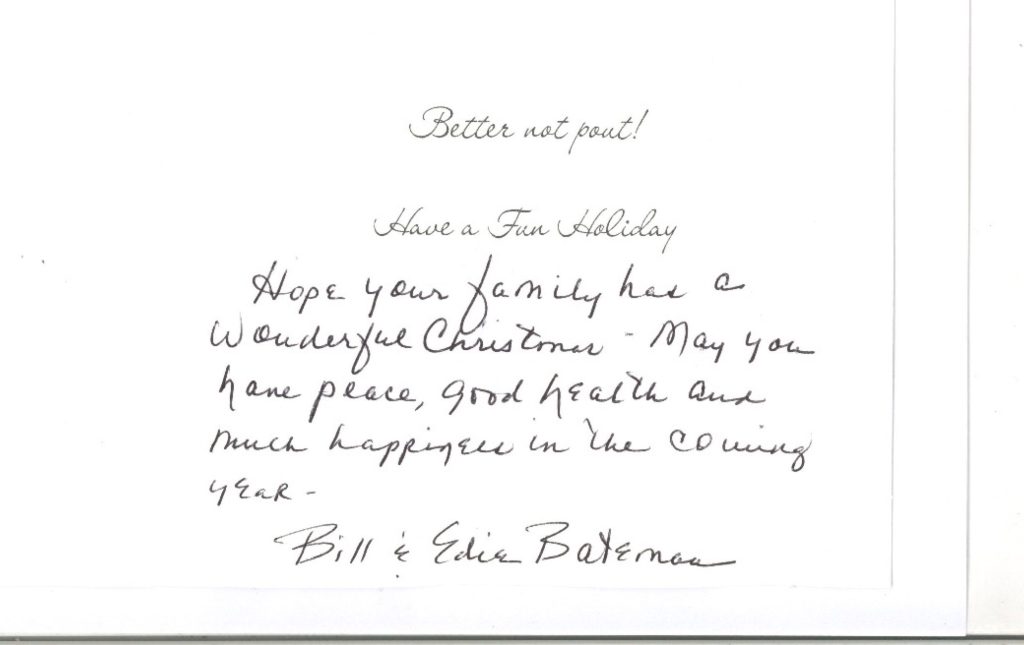 Better not pout!
Have a Fun Holiday
Hope your family has a
wonderful Christmas - May you
have peace, good health and
much happiness in the coming
year -
Bill & Edie Bateman